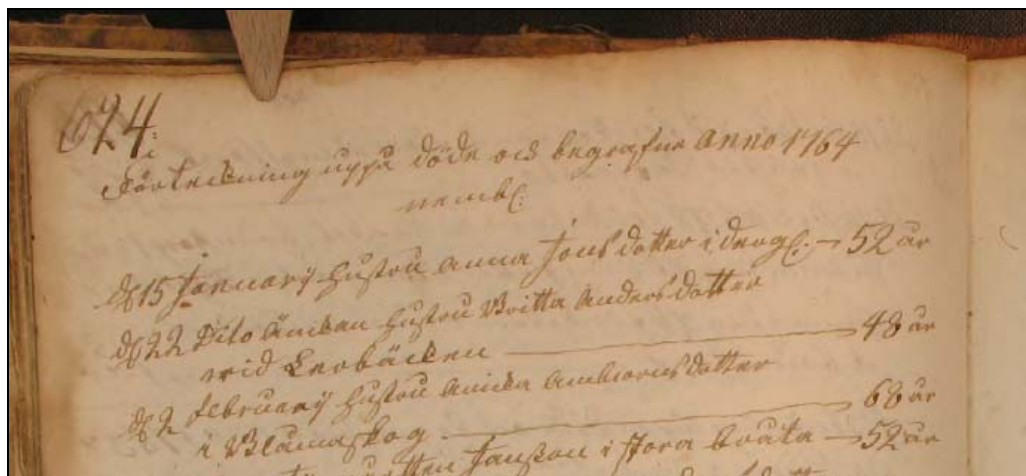 624.
Förteckning uppå döde och begrafne Anno 1764
nembl:
d 15 January hustru Anna Jons dotter i :— 52 år
d 22 Dito Änkan hustru Britta Anders dotter
wid Lerbäcken — 48 år
d 2 february hustru Annika Ambiorns dotter
i Blåmaskog — 68 år
Janson i Stora bråta — 52 år